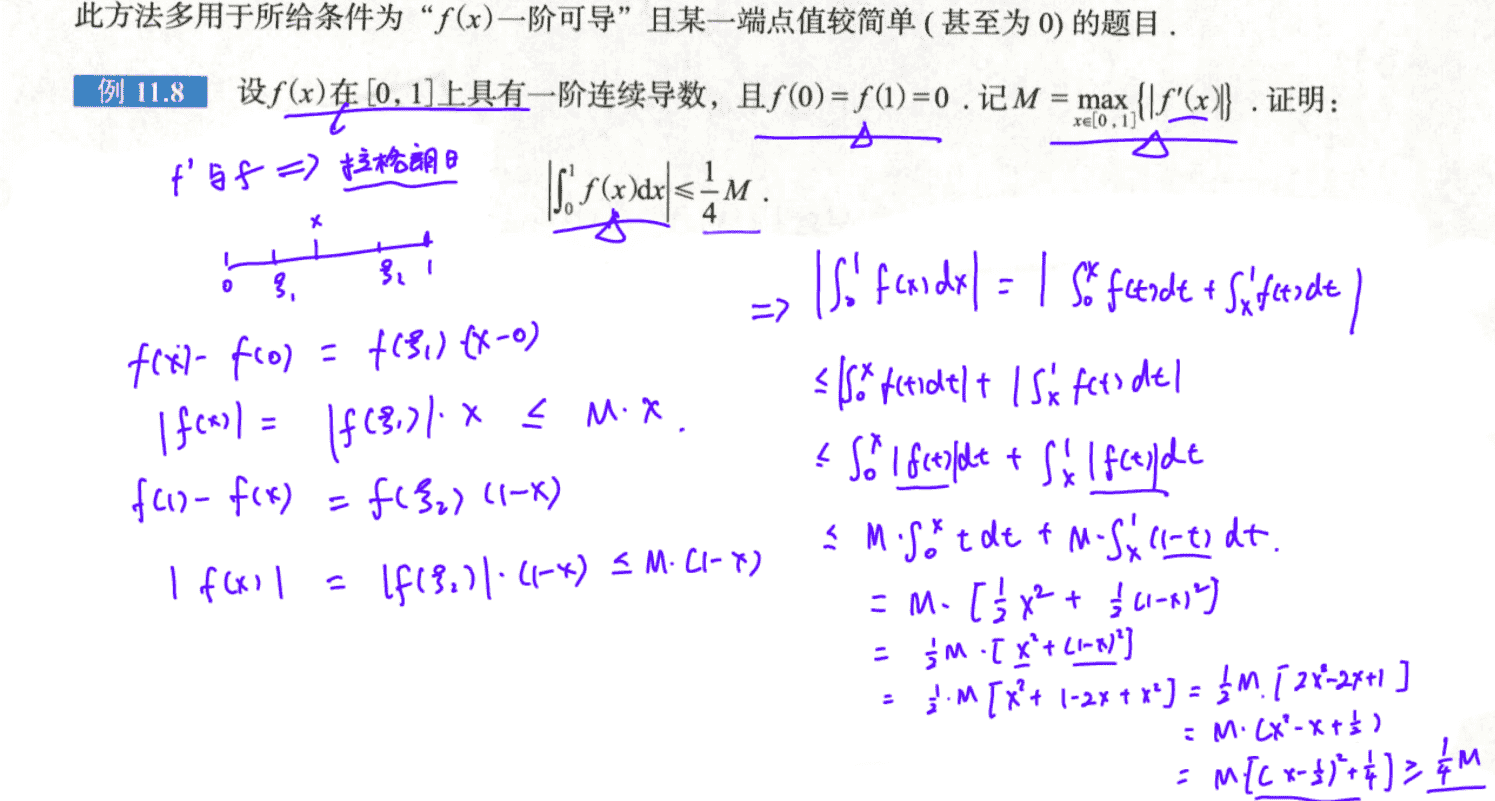 此方法多用于所给条件为“f(x)一阶可导”且某一端点值较简单(甚至为0)的题目.
例 11.8 设f(x)在[0,1]上具有一阶连续导数，且f(0)=f(1)=0.记M=max{|f′(x)|}.证明：
x∈[0,1]
|∫₀¹f(x)dx|≤1/4 M.
f' 与 f => 拉格朗日
x
0 ξ₁ ξ₂ 1
f(x)- f(0) = f(ξ₁)(x-0)
|f(x)| = |f(ξ₁)|·x ≤ M·x.
f(1)- f(x) = f(ξ₂)(1-x)
|f(x)| = |f(ξ₂)|·(1-x) ≤ M·(1-x)
=> |∫₀¹ f(x)dx| = |∫₀ˣ f(t)dt + ∫ₓ¹ f(t)dt|
≤ |∫₀ˣ f(t)dt| + |∫ₓ¹ f(t)dt|
≤ ∫₀ˣ |f(t)|dt + ∫ₓ¹ |f(t)|dt
≤ M·∫₀ˣ t dt + M·∫ₓ¹ (1-t) dt.
= M·[1/2 x² + 1/2 (1-x)²]
= 1/2 M·[x²+(1-x)²]
= 1/2·M[x²+1-2x+x²] = 1/2 M·[2x²-2x+1]
= M·(x²-x+1/2)
= M[(x-1/2)²+1/4] ≥ 1/4 M